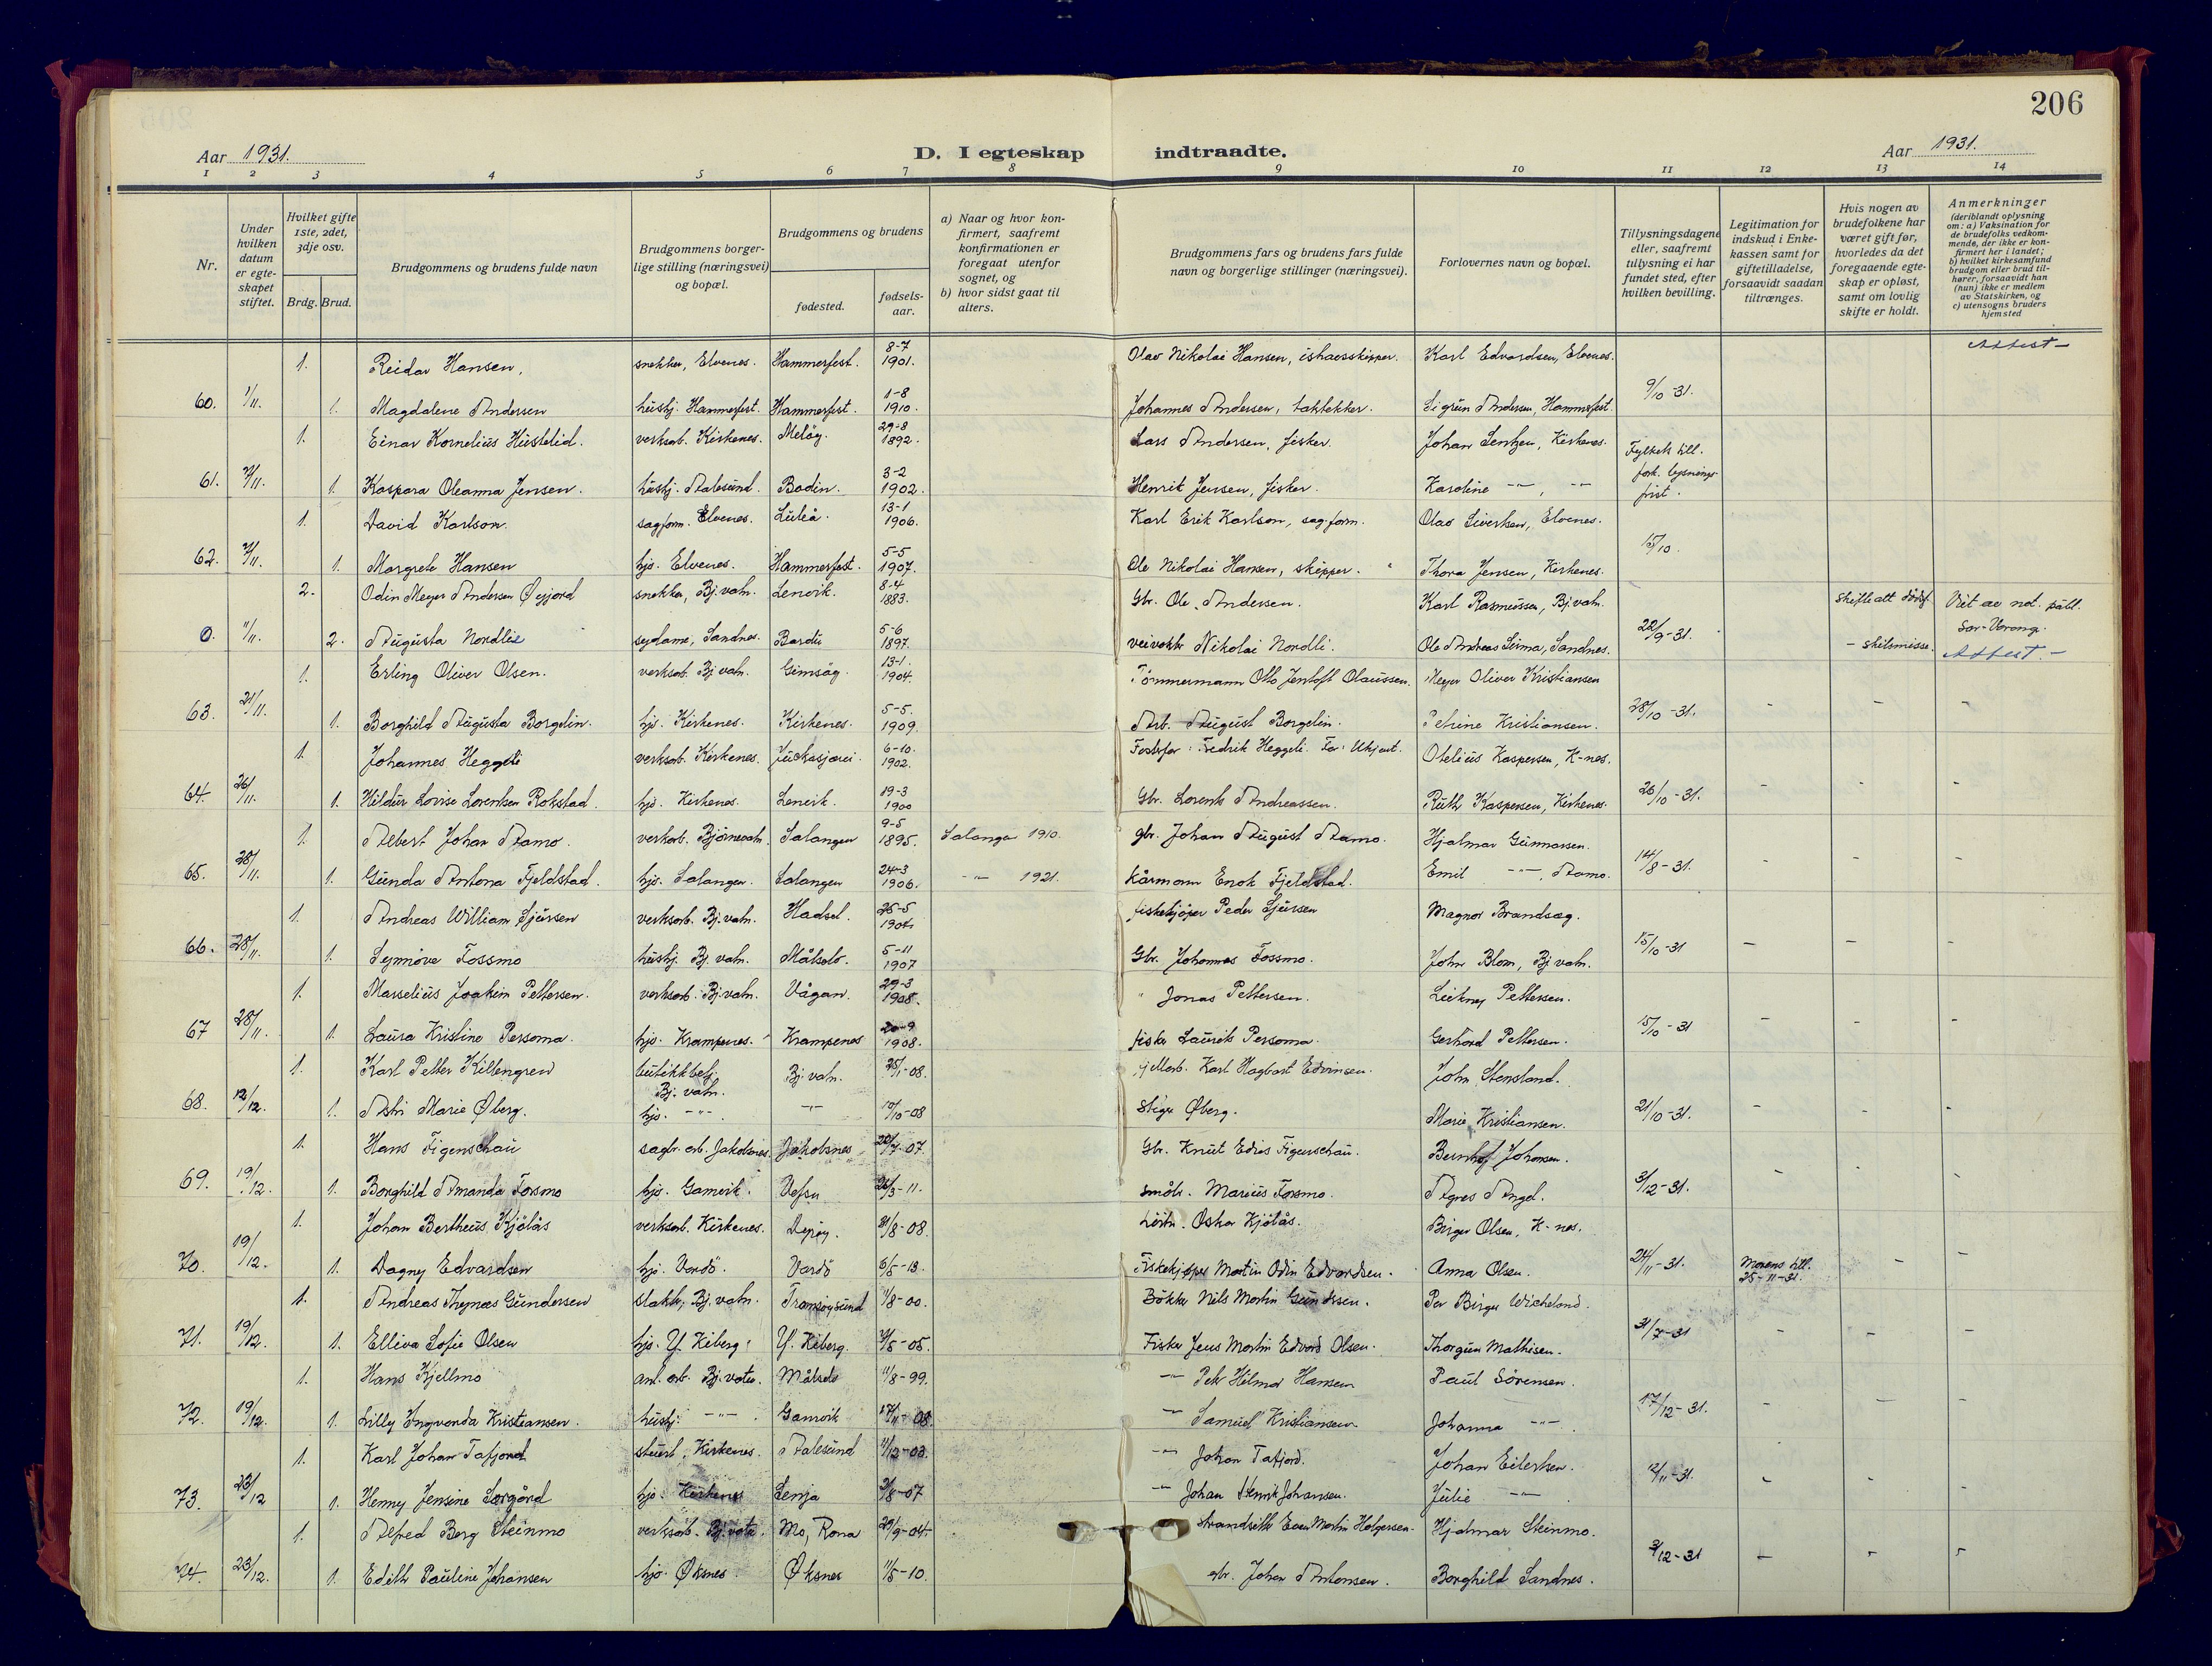 206
Aar 1931.
D. I egteskap indtraadte.
Aar 1931.
1 2 3 4 5 6 7 8 9 10 11 12 13 14
Nr.
Under hvilken datum er egte- skapet stiftet.
Hvilket gifte 1ste, 2det, 3dje osv.
Brdg. Brud.
Brudgommens og brudens fulde navn
Brudgommens borger- lige stilling (næringsvei) og bopæl.
Brudgommens og brudens
fødested.
fødsels- aar.
a) Naar og hvor kon- firmert, saafremt konfirmationen er foregaat utenfor sognet, og
b) hvor sidst gaat til alters.
Brudgommens fars og brudens fars fulde navn og borgerlige stillinger (næringsvei).
Forlovernes navn og bopæl.
Tillysningsdagene eller, saafremt tillysning ei har fundet sted, efter hvilken bevilling.
Legitimation for indskud i Enke- kassen samt for giftetilladelse, forsaavidt saadan tiltrænges.
Hvis nogen av brudefolkene har været gift før, hvorledes da det foregaaende egte- skap er opløst, samt om lovlig skifte er holdt.
Anmerkninger (deriblandt oplysning om: a) Vaksination for de brudefolks vedkom- mende, der ikke er kon- firmert her i landet; b) hvilket kirkesamfund brudgom eller brud til- hører, forsaavidt han (hun) ikke er medlem av Statskirken, og c) utensogns bruders hjemsted
1. Reidar Hansen, snekker, Elvenes. Hammerfest. 8-7 1901. Olav Nikolai Hansen, ishavsskipper. Karl Edvardsen, Elvenes. Attest -
60. 1/11. 1. Magdalene Andersen hushj. Hammerfest. Hammerfest. 1-8 1910. Johannes Andersen, taktekker. Sigrun Andersen, Hammerfest. 9/10-31.
1. Einar Kornelius Hustelid. verksarb. Kirkenes. Meløy. 29-8 1892. Lars Andersen, fisker. Johan Lentzen, Kirkenes. Fylkets till.
61. /11. 1. Kaspara Oleanna Jensen. hushj. Aalesund. Bodin. 3-2 1902. Henrik Jensen, fisker. Karoline -"-, -"- fork. lysnings- frist.
1. David Karlson. sagform. Elvenes. Luleå. 13-1 1906. Karl Erik Karlson, sag.form. Olav Sivertsen, Elvenes.
62. /11. 1. Margrete Hansen hjs. Elvenes. Hammerfest. 5-5 1907. Ole Nikolai Hansen, skipper. Thora Jensen, Kirkenes. 15/10.
2. Odin Meyer Andersen Øijord snekker, Bj.vatn. Lenvik. 8-4 1883. Gbr. Ole Andersen. Karl Rasmussen, Bj.vatn. skifteatt
0. 11/11. 2. Augusta Nordlie sydame, Sandnes. Bardu 5-6 1897. veivokter Nikolai Nordli. Ole Andreas Sirma, Sandnes. 22/9-31. - skilsmisse. Sør-Varang. Attest. -
1. Erling Oliver Olsen. verksarb. Bj.vatn. Gimsøy. 13-1. 1904. Tömmermann Otto Jentoft Olaussen. Meyer Oliver Kristiansen
63. 21/11. 1. Borghild Augusta Borgelin. hjs. Kirkenes. Kirkenes. 5-5. 1909. Arb. August Borgelin. Petrine Kristiansen. 28/10-31. - - -
1. Johannes Heggeli verksarb. Kirkenes. Juckasjärvi. 6-10. 1902. Fosterfar: Fredrik Heggeli. Far: Ukjent. Otelius Kaspersen, K-nes.
64. 26/11. 1. Hildur Lovise Lorentsen Rokstad. hjs. Kirkenes. Lenvik. 19-3 1900 Gbr. Lorents Andreassen. Ruth Kaspersen, Kirkenes. 26/10-31. - - -
1. Albert Johan Aamo. verksarb. Bjørnevatn. Salangen 9-5 1895. Salangen 1910. gbr. Johan August Aamo. Hjalmar Gunnarsen.
65. 28/11. 1. Gunda Antona Fjeldstad. hjs. Salangen. Salangen 24-3 1906. -"- 1921. kårmann Enok Fjeldstad. Emil -"-, Aamo. 14/8-31. - - -
1. Andreas William Sjursen verksarb. Bj.vatn. Hadsel. 25-5 1904 fiskekjöper Peder Sjursen Magnor Brandsæg.
66. 28/11. 1. Synnøve Fossmo hushj. Bj.vatn. Målselv. 5-11 1907 Gbr. Johannes Fossmo. John Blom, Bj.vatn. 15/10-31 - - -
1. Marselius Joakim Pettersen. verksarb. Bj.vatn. Vågan. 29-3 1908. " Jonas Pettersen. Leikny Pettersen.
67 28/11. 1. Laura Kristine Persoma. hjs. Krampenes. Krampenes 20-9 1908. fisker Laurits Persoma. Gerhard Pettersen. 15/10-31 - - -
1. Karl Petter Killengren butikkbetj. Bj.vatn. Bj.vatn. 25/1-08. fjellarb. Karl Hagbart Edvinsen. John Stensland.
68. 12/12. 1. Astri Marie Øberg. hjs. -"-. -"- /10-08 Stiger Øberg. Marie Kristiansen. 21/10-31. - - -
1. Hans Figenschau sagbr. arb. Jakobsnes. Jakobsnes 20/7-07. Gbr. Knut Edvis Figenschau. Bernhof Johansen.
69. 19/12. 1. Borghild Amanda Forsmo hjs. Gamvik. Vefsn 26/3-11. småbr. Marius Forsmo. Agnes Angel. 3/12-31. - - -
1. Johan Bertheus Kjölås verksarb. Kirkenes. 31/8-08. Oskar Kjölås. Birger Olsen, K-nes.
70. 19/12. 1. Dagny Edvardsen hjs. Vardö. Vardö 6/5-13. Fiskekjøper Martin Odin Edvardsen. Anna Olsen. 24/11-31. Morens till. 25-11-31. - -
1. Andreas Thomas Gundersen slakter, Bj.vatn. Tromsøysund 11/8-00. Bökker Nils Martin Gundersen. Per Birger Wicheland.
71. 19/12. 1. Elliva Sofie Olsen hjs. Y. Kiberg. Y. Kiberg. /5-05. Fisker Jens Martin Edvard Olsen. Thorgun Mathisen. 31/7-31 - - -
1. Hans Kjellmo anl. arb. Bj.vatn. Målselv 11/8-99. -"- Petr Hilmar Hansen Paul Sörensen.
72. 19/12. 1. Lilly Ingvarda Kristiansen. hushj. -"-. Gamvik 17/11-08. -"- Samuel Kristiansen Johanna -"-. 17/12-31. - - -
1. Karl Johan Tafjord stuert, Kirkenes. Aalesund 11/12-03. -"- Johan Tafjord. Johan Eilertsen.
73. 23/12 1. Henny Jensine Sørgård hjs. Kirkenes Senja /8-07 -"- Johan Henrik Johansen. Julie -"-. 12/11-31. - - -
1. Alfred Berg Steinmo verksarb. Bj.vatn. Mo, Rana 29/9-04. strandsitter Even Martin Holgersen. Hjalmar Steinmo.
74. 23/12. 1. Edith Pauline Johansen hjs. Øksnes. Øksnes 11/5-10. gbr. Johan Antonsen. Borghild Sandnes. /12-31 - - -